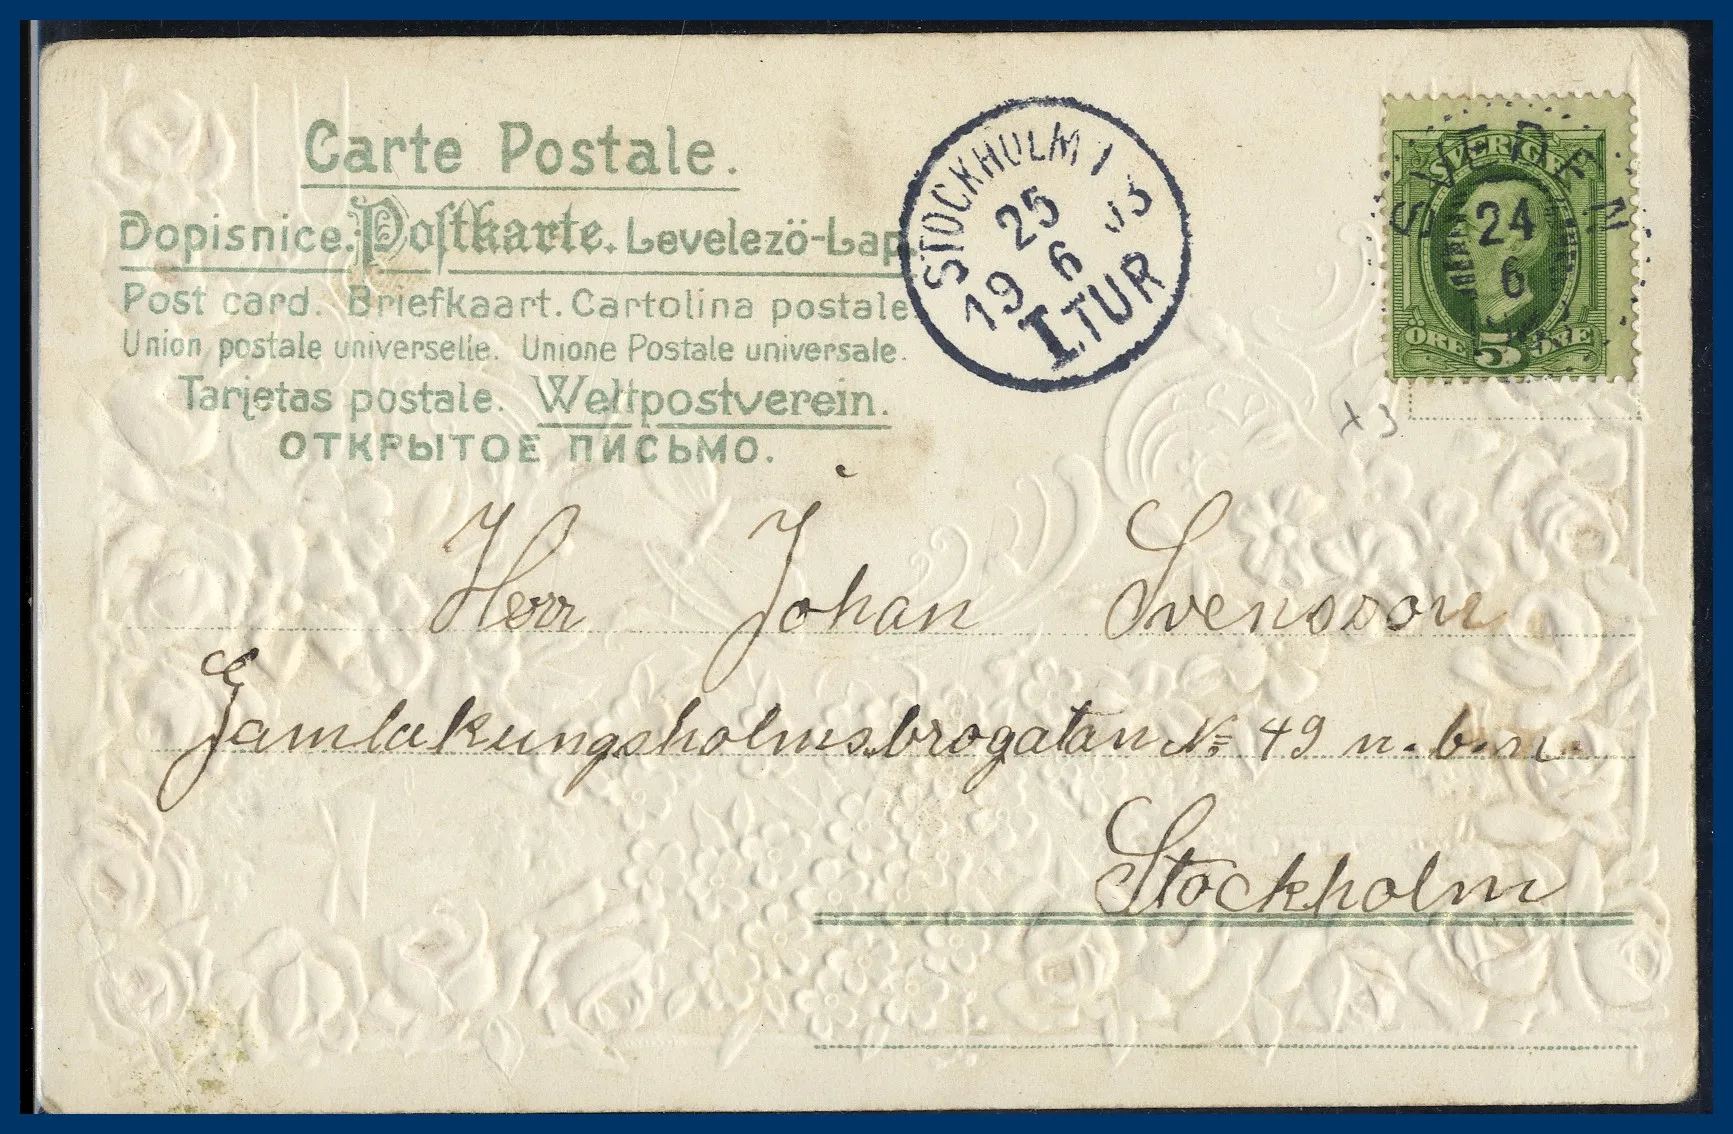 Carte Postale.
Dopisnice. Postkarte. Levelező-Lap
Post card. Briefkaart. Cartolina postale
Union postale universelle. Unione Postale universale.
Tarjetas postale. Weltpostverein.
ОТКРЫТОЕ ПИСЬМО.
STOCKHOLM 1
25
19 6 03
I.TUR
SVERIGE
SWEDEN
24
6
ÖRE 5 ÖRE
x 3
Herr Johan Svensson
Gamlakungsholmsbrogatan No 49 n. b. n.
Stockholm